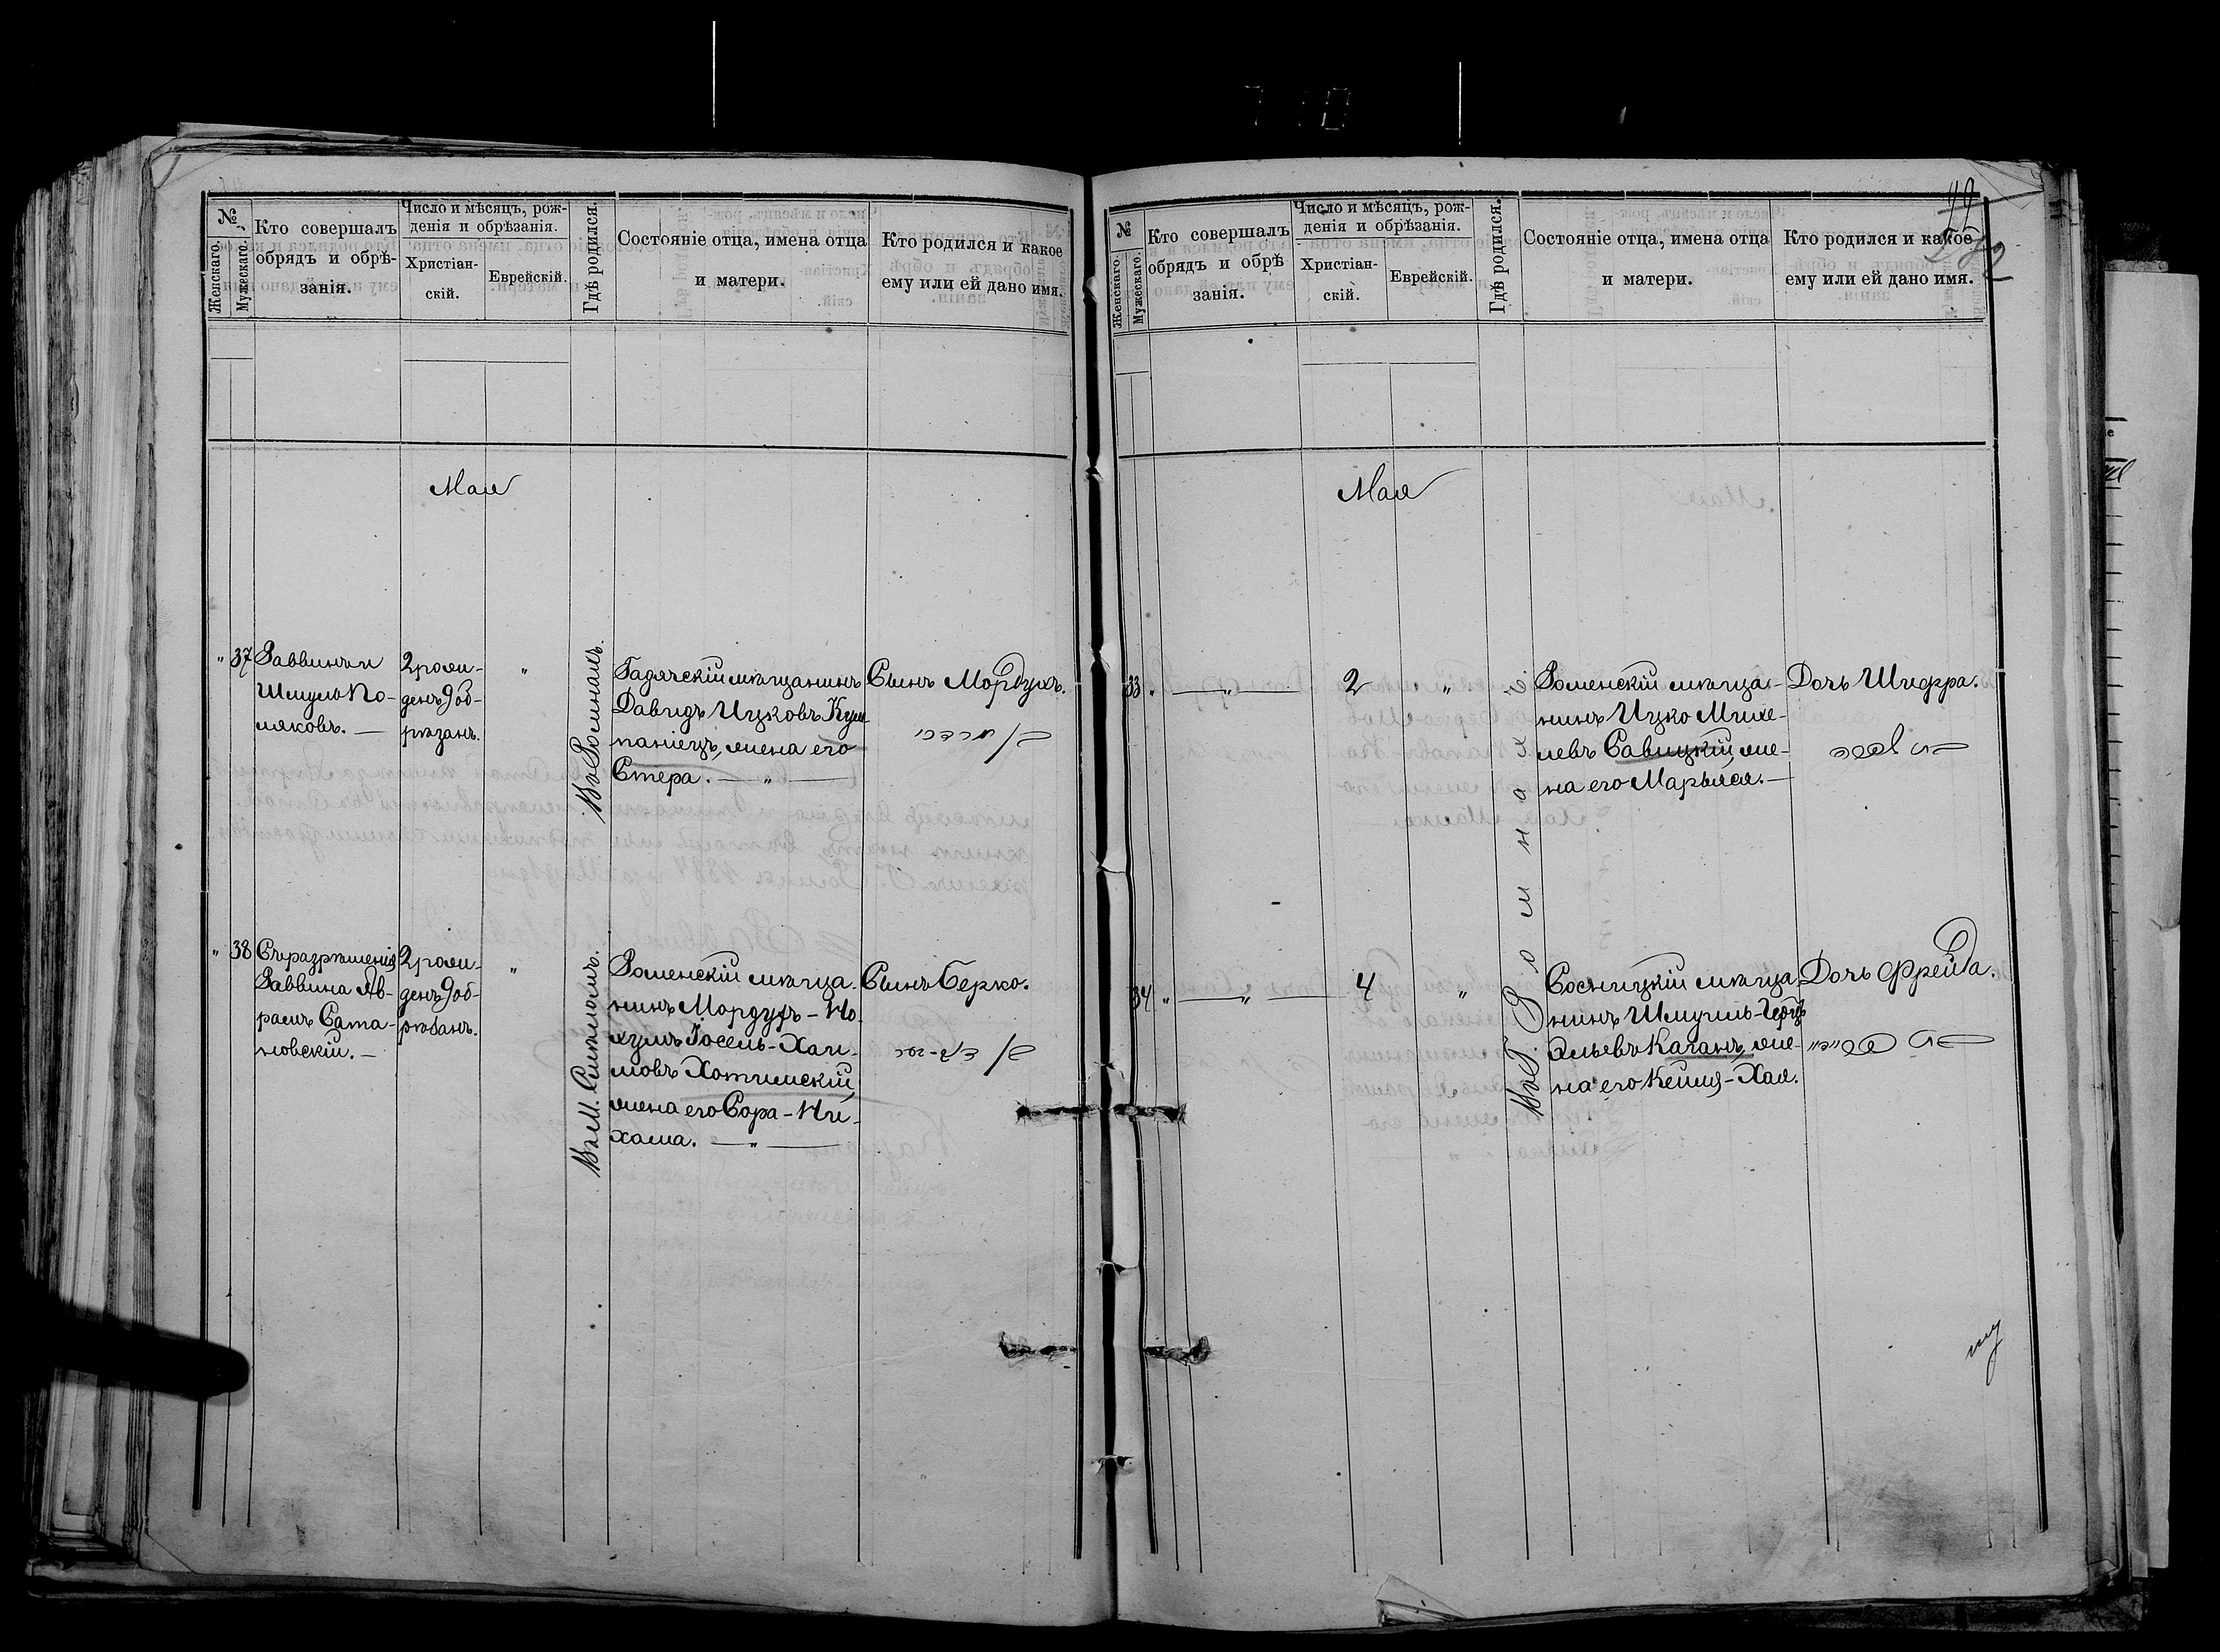 №
Женскаго.
Мужескаго.
Кто совершалъ
обрядъ и обрѣ-
занія.
Число и мѣсяцъ, рож-
денія и обрѣзанія.
Христіан-
скій.
Еврейскій.
Гдѣ родился.
Состояніе отца, имена отца
и матери.
Кто родился и какое
ему или ей дано имя.
Мая
" 37
Раввинъ
Шмуль По-
ляковъ. —
2 роди-
денъ 9 об-
рѣзанъ.
"
Въ г. Ромнахъ.
Гадячскій мѣщанинъ
Давидъ Ицковъ
жена его
Стера. — " —
Сынъ Мордухъ.
" 38
Съ разрѣшенія
Раввина Ав-
рамъ Сата-
новскій. —
2 роди-
денъ 9 об-
рѣзанъ.
"
Въ м.
Роменскій мѣща-
нинъ Мордухъ-Но-
хумъ Іосель-Хаи-
мовъ Хотимскій,
жена его Сора-Не-
хама. — " —
Сынъ Берко.
№
Женскаго.
Мужескаго.
Кто совершалъ
обрядъ и обрѣ
занія.
Число и мѣсяцъ, рож-
денія и обрѣзанія.
Христіан-
скій.
Еврейскій.
Гдѣ родился.
Состояніе отца, имена отца
и матери.
Кто родился и какое
ему или ей дано имя.
Мая
33 " — " —
2
"
Роменскій мѣща-
нинъ Ицко Михе-
левъ Савицкій, же-
на его Марьяся. —
Дочь Шифра.
34 " — " —
4
"
Сосницкій мѣща
нинъ Шмуиль-
Каганъ, же-
на его Хая.
Дочь Фрейда.